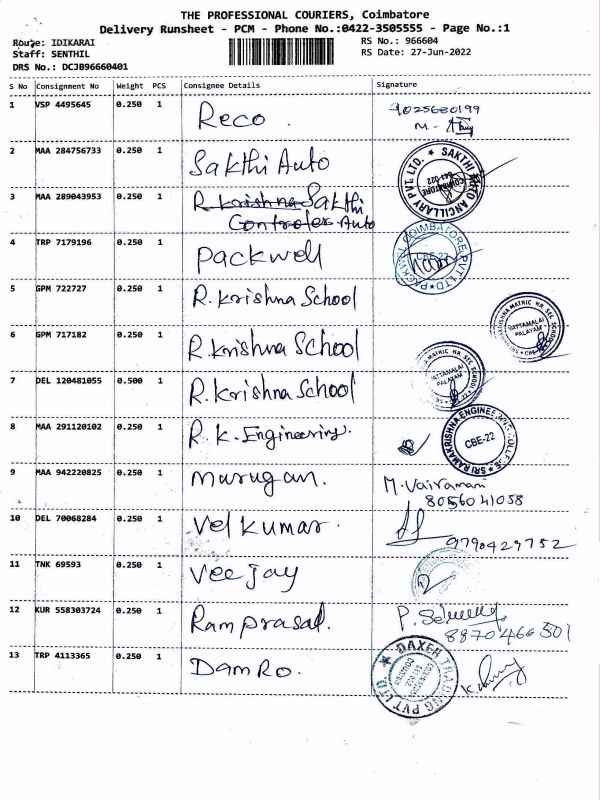 THE PROFESSIONAL COURIERS, Coimbatore
Delivery Runsheet - PCM - Phone No.:0422-3505555 - Page No.:1
Route: IDIKARAI
RS No.: 966604
Staff: SENTHIL
RS Date: 27-Jun-2022
DRS No.: DCJB96660401
S No Consignment No Weight PCS Consignee Details Signature
1 VSP 4495645 0.250 1 Reco 9025680199
M.
2 MAA 284756733 0.250 1 Sakthi Auto
SAKTHI AUTO ANCILLARY PVT LTD. COIMBATORE 641-022
3 MAA 289043953 0.250 1 R.Krishna Sakthi
Controler Auto
4 TRP 7179196 0.250 1 Packwell
PACKWELL COIMBATORE PVT LTD CBE-22
5 GPM 722727 0.250 1 R.Krishna School
SRI RAMAKRISHNA MATRIC HR SEC SCHOOL RATTAMALAI PALAYAM
6 GPM 717182 0.250 1 R.Krishna School
MATRIC HR SEC SCHOOL PALAYAM
7 DEL 120481055 0.500 1 R.Krishna School
8 MAA 291120102 0.250 1 R.K.Engineering.
SRI RAMAKRISHNA ENGINEERING COLLEGE CBE-22
9 MAA 942220825 0.250 1 Murugan. M.Vairamani
8056041058
10 DEL 70068284 0.250 1 Vel Kumar.
9790429752
11 TNK 69593 0.250 1 Veejay
12 KUR 558303724 0.250 1 Ramprasad. P.
8870466501
13 TRP 4113365 0.250 1 DamRo.
DAXER TRADING PVT LTD